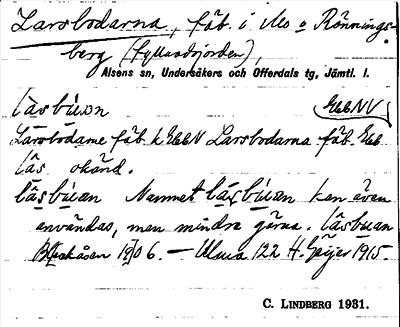 Larsbodarna, fäb. i Mo o Rönnings-
berg (Kyllaråsjorden),
Alsens sn, Undersåkers och Offerdals tg, Jämtl. l.
läsbúɛn
GEBNV
Larsbodarne fäb. k GEBN Larsbodarna fäb. GEB.
läs okänd.
läsbuɛn Namnet läsbuɛn kan även
användas, men mindre gärna. läsbuan
1906. — Ulma 122 H. Geijer 1915.
C. LINDBERG 1931.